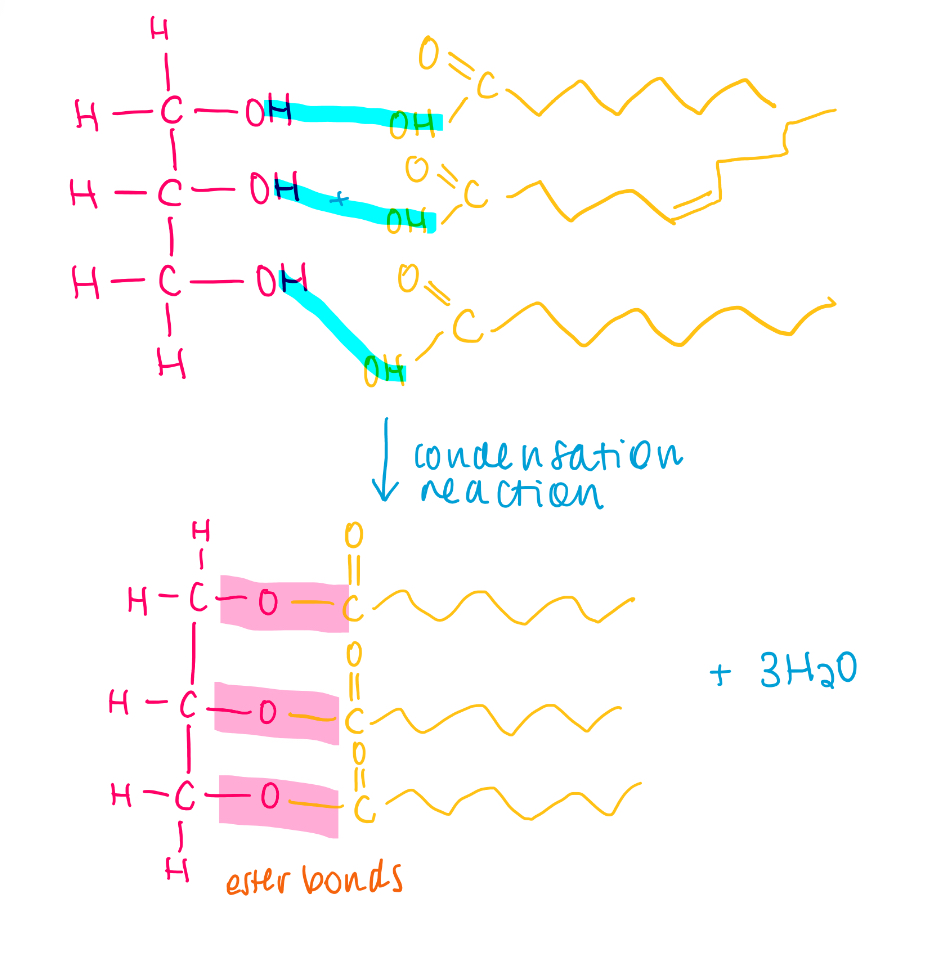 H
O
H — C — OH
C
OH
O
H — C — OH
+
C
OH
H — C — OH
O
C
H
OH
condensation
reaction
H
O
H — C — O — C
O
H — C — O — C
O
H — C — O — C
H
+ 3H₂O
ester bonds